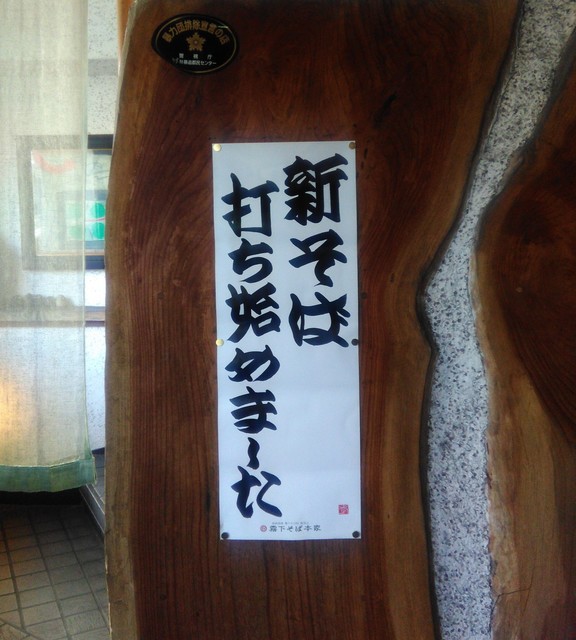 暴力団排除宣言の店
警視庁
新そば
打ち始めました
霧下そば本家